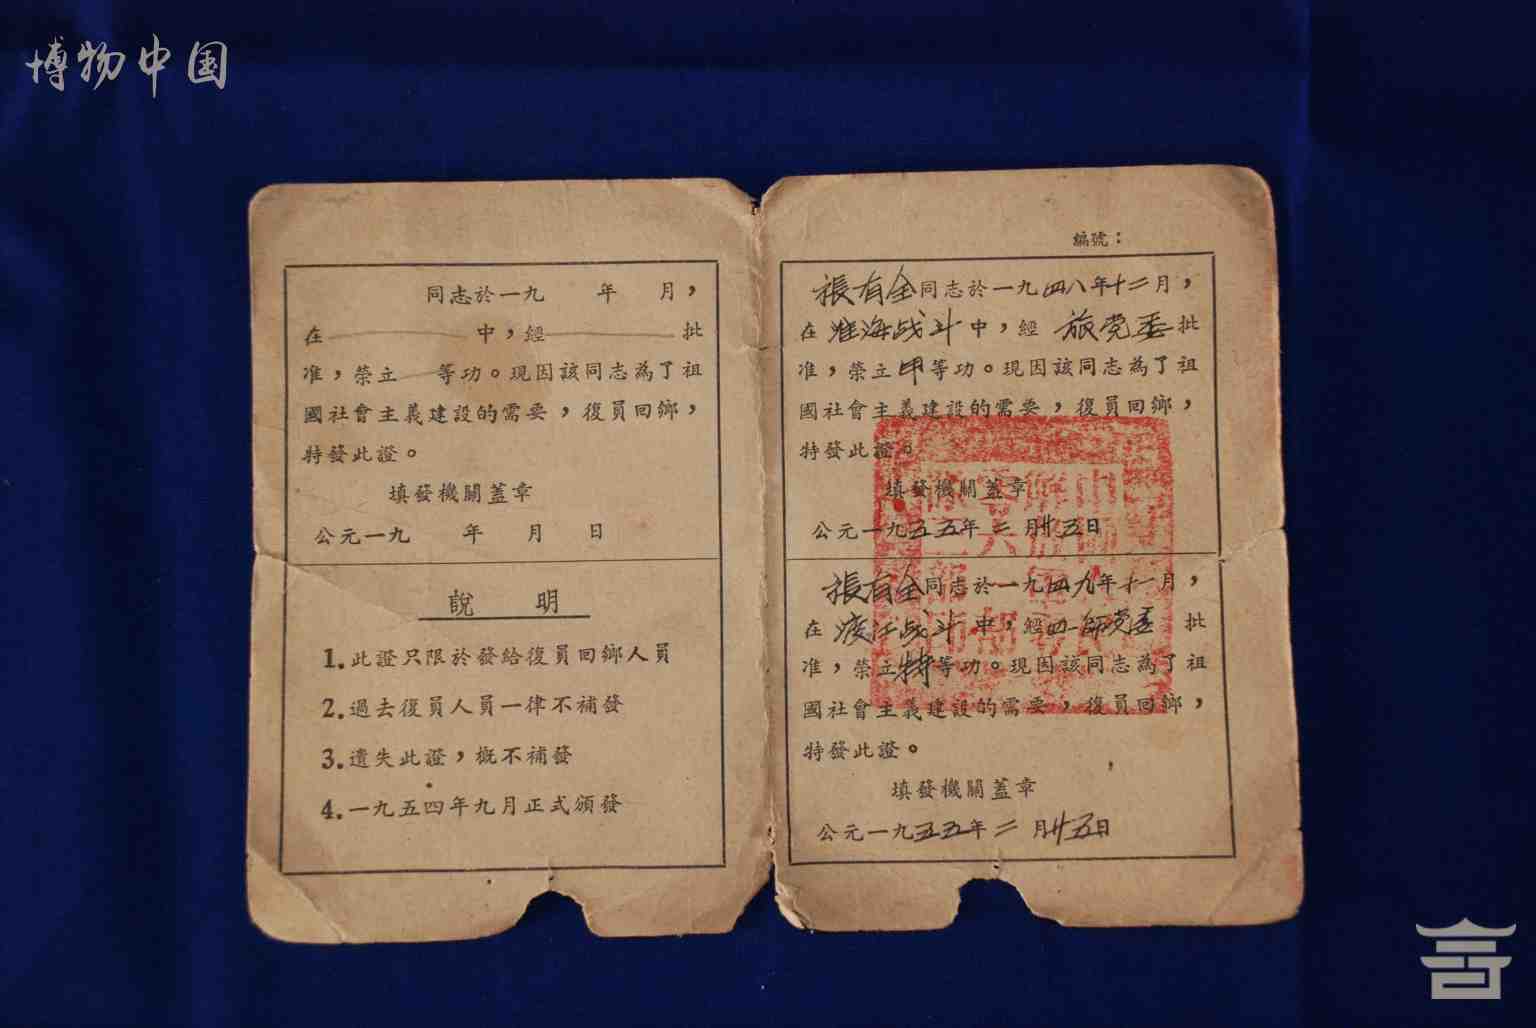 博物中国
同志於一九 年 月，
在 中，經 批
准，榮立 等功。現因該同志為了祖
國社會主義建設的需要，復員回鄉，
特發此證。
填發機關蓋章
公元一九 年 月 日
說 明
1.此證只限於發給復員回鄉人員
2.過去復員人員一律不補發
3.遺失此證，概不補發
4.一九五四年九月正式頒發
編號：
張有全同志於一九四八年十二月，
在淮海战斗中，經 旅党委批
准，榮立甲等功。現因該同志為了祖
國社會主義建設的需要，復員回鄉，
特發此證。
填發機關蓋章
公元一九五五年二月廿五日
張有全同志於一九四九年十一月，
在渡江战斗中，經四一師党委 批
准，榮立特等功。現因該同志為了祖
國社會主義建設的需要，復員回鄉，
特發此證。
填發機關蓋章
公元一九五五年二月廿五日